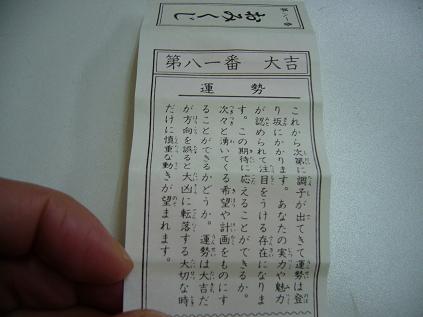 第八一番
おみくじ
第八一番 大吉
運勢
これから次第に調子が出てきて運勢は登
り坂にかかります。あなたの実力や魅力
が認められて注目をうける存在になりま
す。この期待に応えることができるか。
次々と湧いてくる希望や計画をものにす
ることができるかどうか。運勢は大吉だ
が方向を誤ると大凶に転落する大切な時
だけに慎重な動きが望まれます。